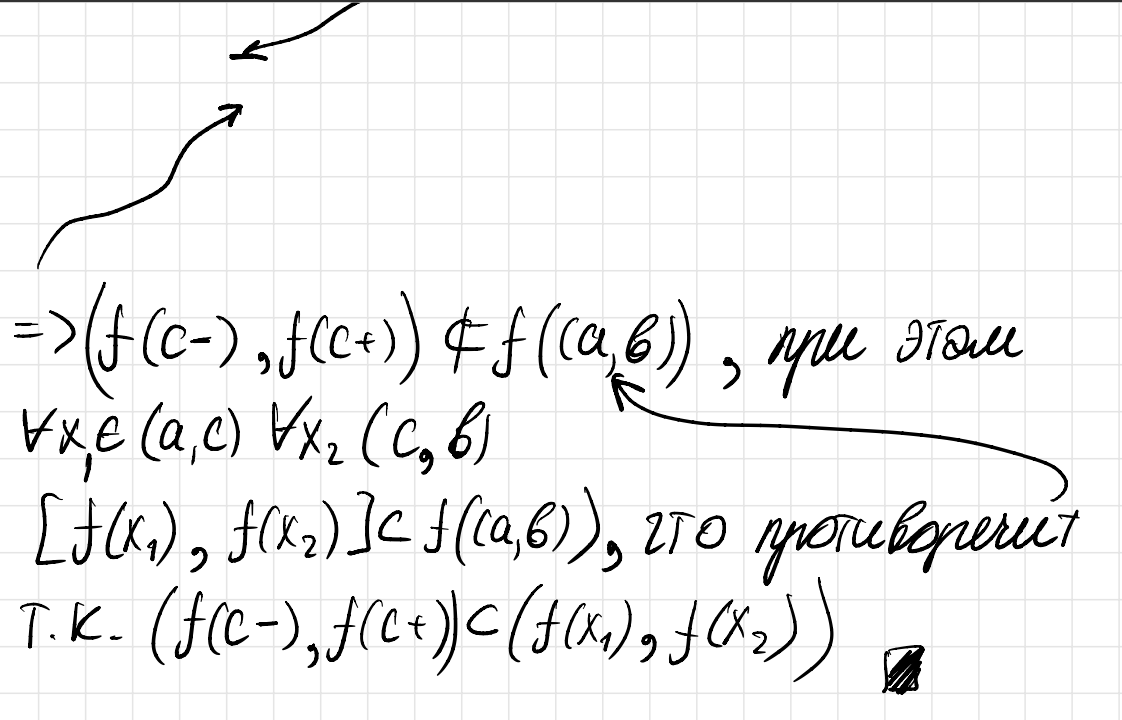 => (f(c-), f(c+)) ⊄ f((a,b)), при этом
∀x₁∈(a,c) ∀x₂(c,b)
[f(x₁), f(x₂)]⊂ f((a,b)), что противоречит
т.к. (f(c-), f(c+))⊂(f(x₁), f(x₂))